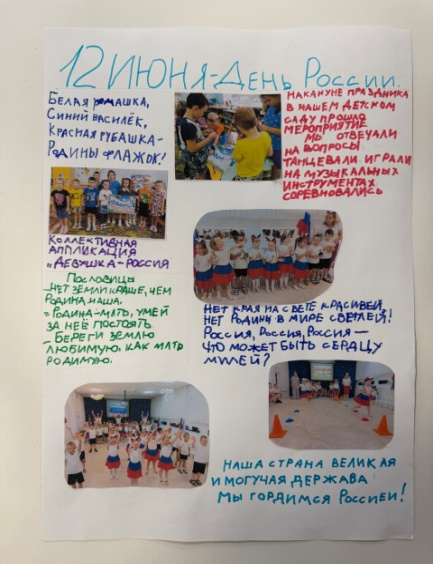 12 ИЮНЯ-ДЕНЬ РОССИИ.
БЕЛАЯ РОМАШКА,
СИНИЙ ВАСИЛЁК,
КРАСНАЯ РУБАШКА-
РОДИНЫ ФЛАЖОК!
НАКАНУНЕ ПРАЗДНИКА
В НАШЕМ ДЕТСКОМ
САДУ ПРОШЛО
МЕРОПРИЯТИЕ
МЫ ОТВЕЧАЛИ
НА ВОПРОСЫ
ТАНЦЕВАЛИ. ИГРАЛИ
НА МУЗЫКАЛЬНЫХ
ИНСТРУМЕНТАХ
СОРЕВНОВАЛИСЬ
КОЛЛЕКТИВНАЯ
АППЛИКАЦИЯ
„ДЕВУШКА-РОССИЯ
ПОСЛОВИЦЫ
-НЕТ ЗЕМЛИ КРАШЕ, ЧЕМ
РОДИНА НАША.
-РОДИНА-МАТЬ, УМЕЙ
ЗА НЕЁ ПОСТОЯТЬ
-БЕРЕГИ ЗЕМЛЮ
ЛЮБИМУЮ, КАК МАТЬ
РОДИМУЮ.
НЕТ КРАЯ НА СВЕТЕ КРАСИВЕЙ,
НЕТ РОДИНЫ В МИРЕ СВЕТЛЕЙ!
РОССИЯ, РОССИЯ, РОССИЯ-
ЧТО МОЖЕТ БЫТЬ СЕРДЦУ
МИЛЕЙ?
НАША СТРАНА ВЕЛИКАЯ
И МОГУЧАЯ ДЕРЖАВА
МЫ ГОРДИМСЯ РОССИЕЙ!